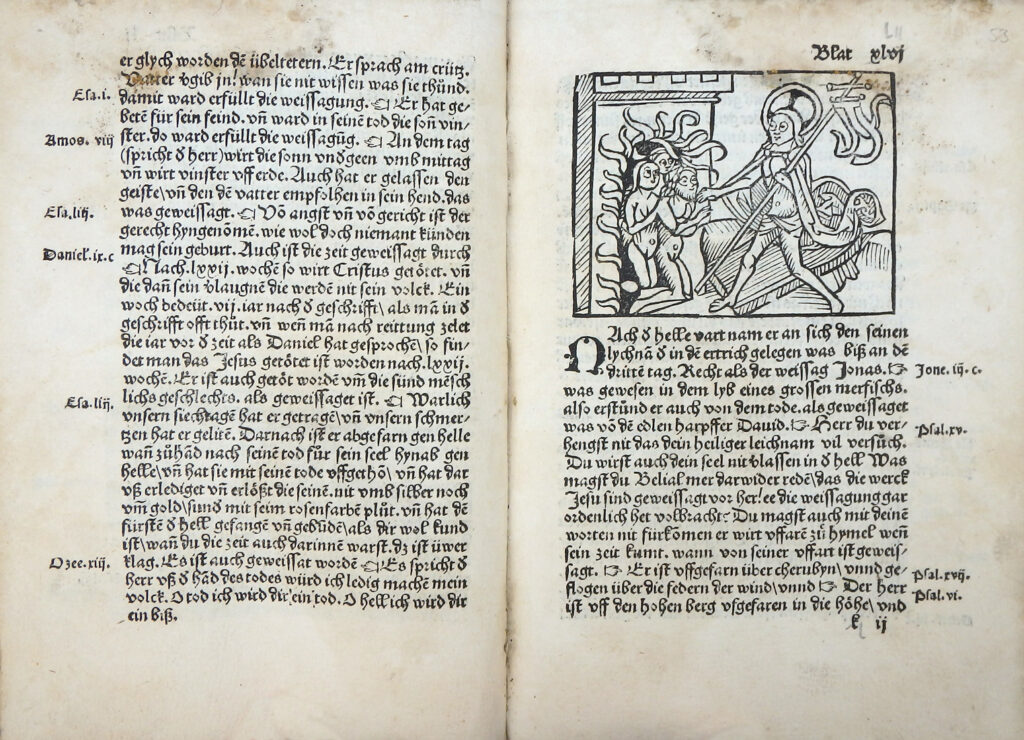 er glych worden dẽ übeltetern. Er sprach am crütz.
Vatter vgib jn! wan sie nit wissen was sie thünd.
Esa. i.
damit ward erfüllt die weissagung. Er hat ge-
betẽ für sein feind. vñ ward in seinẽ tod die soñ vin-
ster. do ward erfüllt die weissagũg. An dem tag
Amos. viij
(spricht d̕ herr) wirt die sonn vndgeen vmb mittag
vñ wirt vinster vff erde. Auch hat er gelassen den
geiste/ vñ den dẽ vatter empfolhen in sein hend. das
Esa. liij.
was geweissagt. Võ angst vñ võ gericht ist der
gerecht hyngenomẽ. wie wol doch niemant künden
mag sein geburt. Auch ist die zeit geweissagt durch
Daniel. ix. c
Nach. lxxij. wochẽ so wirt Cristus getötet. vñ
die dañ sein vlaugnẽ die werdẽ nit sein volck. Ein
woch bedeüt. vij. iar nach d̕ geschrifft/ als mã in d̕
geschrifft offt thüt. vñ weñ mã nach reittung zelet
die iar vor d̕ zeit als Daniel hat gesprochẽ/ so fin-
det man das Jesus getötet ist worden nach. lxxij.
wochẽ. Er ist auch getöt wordẽ vm̃ die sünd mẽsch
lichs geschlechts. als geweissaget ist. Warlich
Esa. liij.
vnsern siechtagẽ hat er getragẽ/ vñ vnsern schmer-
tzen hat er gelitẽ. Darnach ist er abgefarn gen helle
wañ zühãd nach seinẽ tod für sein seel hynab gen
helle/ vñ hat sie mit seinẽ tode vffgethõ/ vñ hat dar
vß erlediget vñ erlößt die seinẽ. nit vmb silber noch
vm̃ gold/ sund̕ mit seim rosenfarbẽ plüt. vñ hat dẽ
fürstẽ d̕ hell gefangẽ vñ gebũdẽ/ als dir wol kund
ist/ wañ du die zeit auch darinnẽ warst. dz ist üwer
klag. Es ist auch geweissat wordẽ Es spricht d̕
Ozee. xiij.
herr vß d̕ hãd des todes würd ich ledig machẽ mein
volck. O tod ich wird dir ein tod. O hell ich wird dir
ein biß.
Blat xlvj
NAch d̕ helle vart nam er an sich den seinen
lychnã d̕ in dẽ ertrich gelegen was biß an dẽ
dritte tag. Recht als der weissag Jonas.
Jone. ij. c.
was gewesen in dem lyb eines grossen merfischs.
also erstünd er auch von dem tode. als geweissaget
was võ dẽ edlen harpffer Dauid. Herr du ver-
Psal. xv.
hengst nit das dein heiliger leichnam vil versüch.
Du wirst auch dein seel nit vlassen in d̕ hell Was
magst du Belial mer darwider redẽ/ das die werck
Jesu sind geweissagt vor her! ee die weissagung gar
ordenlich het volbracht? Du magst auch mit deinẽ
worten nit fürkõmen er wirt vffarẽ zů hymel weñ
sein zeit kumt. wann von seiner vffart ist geweis-
sagt. Er ist vffgefarn über cherubyn/ vnnd ge-
Psal. xvij.
flogen über die federn der wind/ vnnd Der herr
Psal. vi.
ist vff den hohen berg vfgefaren in die höhe/ vnd
k ij